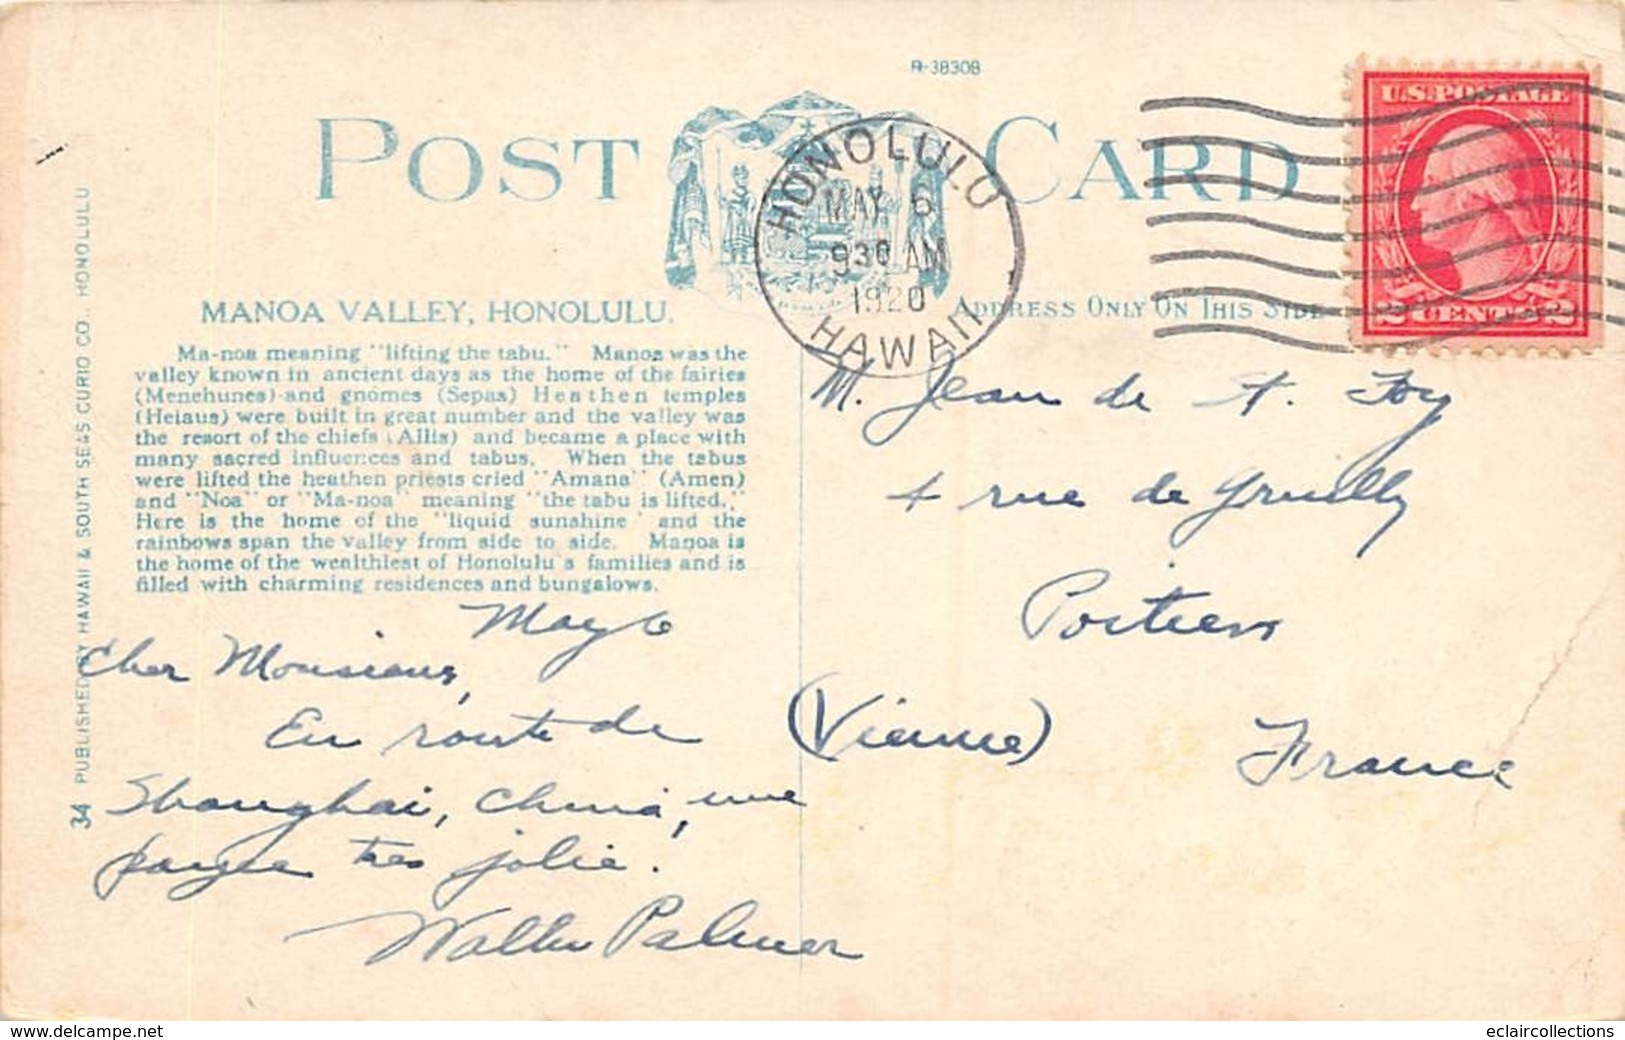 R-38308
POST CARD
U.S. POSTAGE
2 CENTS 2
HONOLULU
MAY 6
930 AM
1920
HAWAII
MANOA VALLEY, HONOLULU.
ADDRESS ONLY ON THIS SIDE
Ma-noa meaning "lifting the tabu." Manoa was the
valley known in ancient days as the home of the fairies
(Menehunes) and gnomes (Sepas) Heathen temples
(Heiaus) were built in great number and the valley was
the resort of the chiefs (Allis) and became a place with
many sacred influences and tabus. When the tabus
were lifted the heathen priests cried "Amana" (Amen)
and "Noa" or "Ma-noa" meaning "the tabu is lifted."
Here is the home of the "liquid sunshine" and the
rainbows span the valley from side to side. Manoa is
the home of the wealthiest of Honolulu's families and is
filled with charming residences and bungalows.
34 PUBLISHED BY HAWAII & SOUTH SEAS CURIO CO., HONOLULU
May 6
Cher Monsieur,
En route de
Shanghai, China, une
payse tres jolie.
Walter Palmer
M. Jean de St. Foy
4 rue de Gruilly
Poitiers
(Vienne) France
www.delcampe.net
eclaircollections